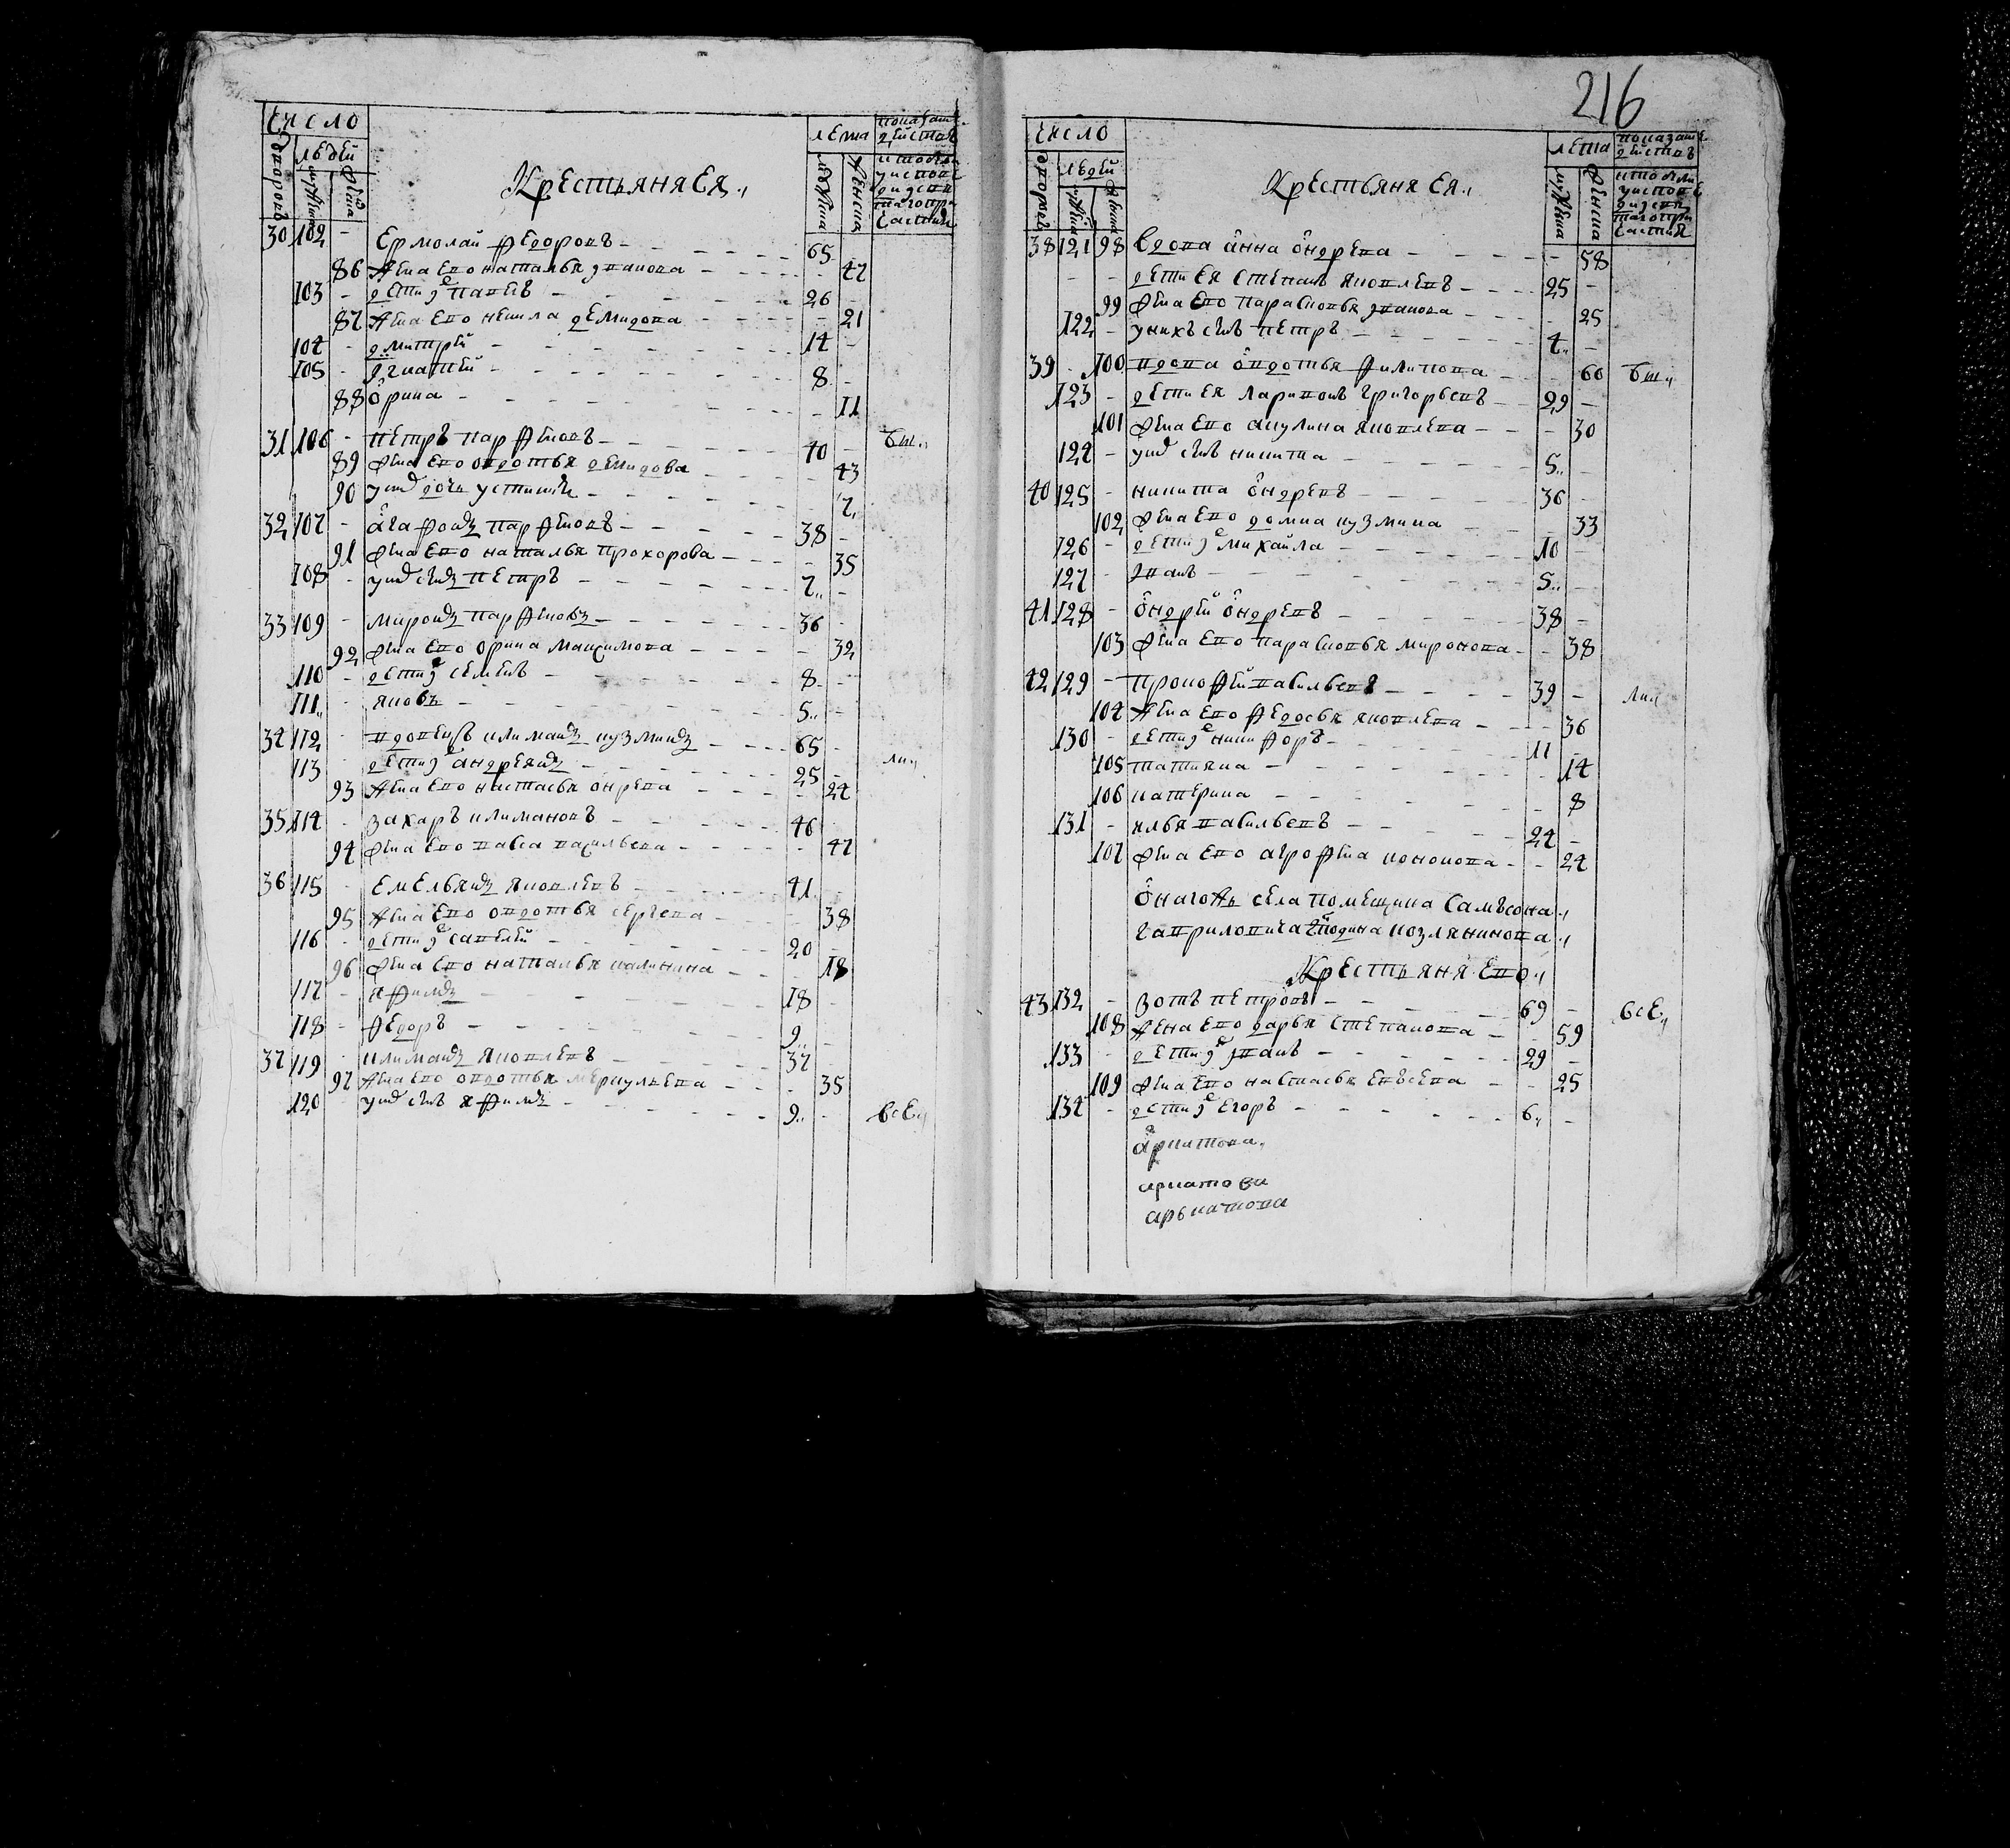 число
дворовъ
людей
мужска
женска
Крестьяня Ея,,
лета
мужска
женска
показат
действ
30 102 - Ермолай Федоровъ - 65 -
86 Жена Ево наталья Иванова - 47
103 - дети их павелъ - 26 -
87 Жена Ево ненила демидова - 21
104 - дмитрей - 14 -
105 - Игнатей - 8 -
88 орина - 11
31 106 - петръ парфеновъ - 40 - бы,,
89 жена Ево овдотья демидова - 43
90 у них дочь устинья - 7,,
32 107 - агафонъ парфеновъ - 38 -
91 жена Ево наталья прохорова - 35
108 - у них сынъ петръ - 7,, -
33 109 - миронъ парфеновъ - 36 -
92 жена Ево орина максимова - 32
110 - дети их семенъ - 8 -
111,, - яковъ - 5,, -
34 112 - вдовецъ климанъ кузминъ - 65 -
113 дети его андреянъ - 25 - ли,,
93 Жена Ево настасья онрева - 24
35 114 - захаръ климановъ - 46
94 жена Ево васса васильева - 47
36 115 - Емельянъ яковлевъ - 41 -
95 Жена Ево овдотья сергева - 38
116 - дети их савелей - 20 -
96 жена Ево наталья калинина - 18
117 - яфимъ - 18 -
118 - Федоръ - 9,, -
37 119 - климанъ яковлевъ - 37
97 Жена Ево овдотья меркульева - 35
120 у них сынъ яфимъ - 9,, - все,,
216
число
дворовъ
людей
мужска
женска
Крестьяня Ея,,
лета
мужска
женска
показат
действ
38 121 98 вдова анна ондрева - 58
- - дети Ея степанъ яковлевъ - 25 -
99 жена Ево парасковья Иванова - 25
122 - у нихъ сынъ петръ - 4,, -
39 - 100 вдова овдотья филипова - 60 бы,,
123 - дети Ея ларивонъ григорьевъ - 29 -
101 жена Ево акулина яковлева - 30
124 - у них сынъ никита - 5,, -
40 125 - никита ондревъ - 36 -
102 жена Ево домна кузмина - 33
126 - дети их михаила - 10 -
127 - Иванъ - 5,, -
41 128 - ондрей ондревъ - 38 -
103 жена Ево парасковья миронова - 38
42 129 - прокофей васильевъ - 39 - ли,,
104 Жена Ево федосья яковлева - 36
130 - дети их никифоръ - 11 -
105 татияна - 14
106 катерина - 8
131 - илья васильевъ - 24 -
107 жена Ево агрофена кононова - 24
Оного жъ села помещика самъсона,,
гавриловича господина козлянинова,,
Крестьяня Ево,,
43 132 - зотъ петровъ - 69 - все,,
108 Жена Ево дарья степанова - 59
133 - дети их Иванъ - 29 -
109 жена Ево настасья Евъсева - 25
134 - дети их Егоръ - 6,, -